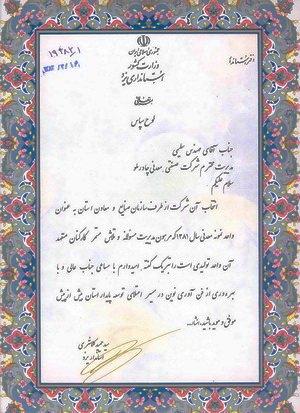 جمهوری اسلامی ایران
وزارت کشور
استانداری یزد
دفتر استاندار
بسمه تعالی
لوح سپاس
جناب آقای مهندس سلیمی
مدیریت محترم شرکت صنعتی معدنی چادرملو
سلام علیکم
انتخاب آن شرکت از طرف سازمان صنایع و معادن استان به عنوان
واحد نمونه معدنی سال ۱۳۸۱ که مرهون مدیریت مسئولانه و تلاش مستمر کارکنان متعهد
آن واحد تولیدی است را تبریک گفته امیدوارم با مساعی جناب عالی و با
بهره‌وری از فن آوری نوین در مسیر اعتلای توسعه پایدار استان بیش از پیش
موفق و موید باشید. انشاءا...
سید حمید کلانتری
استاندار یزد